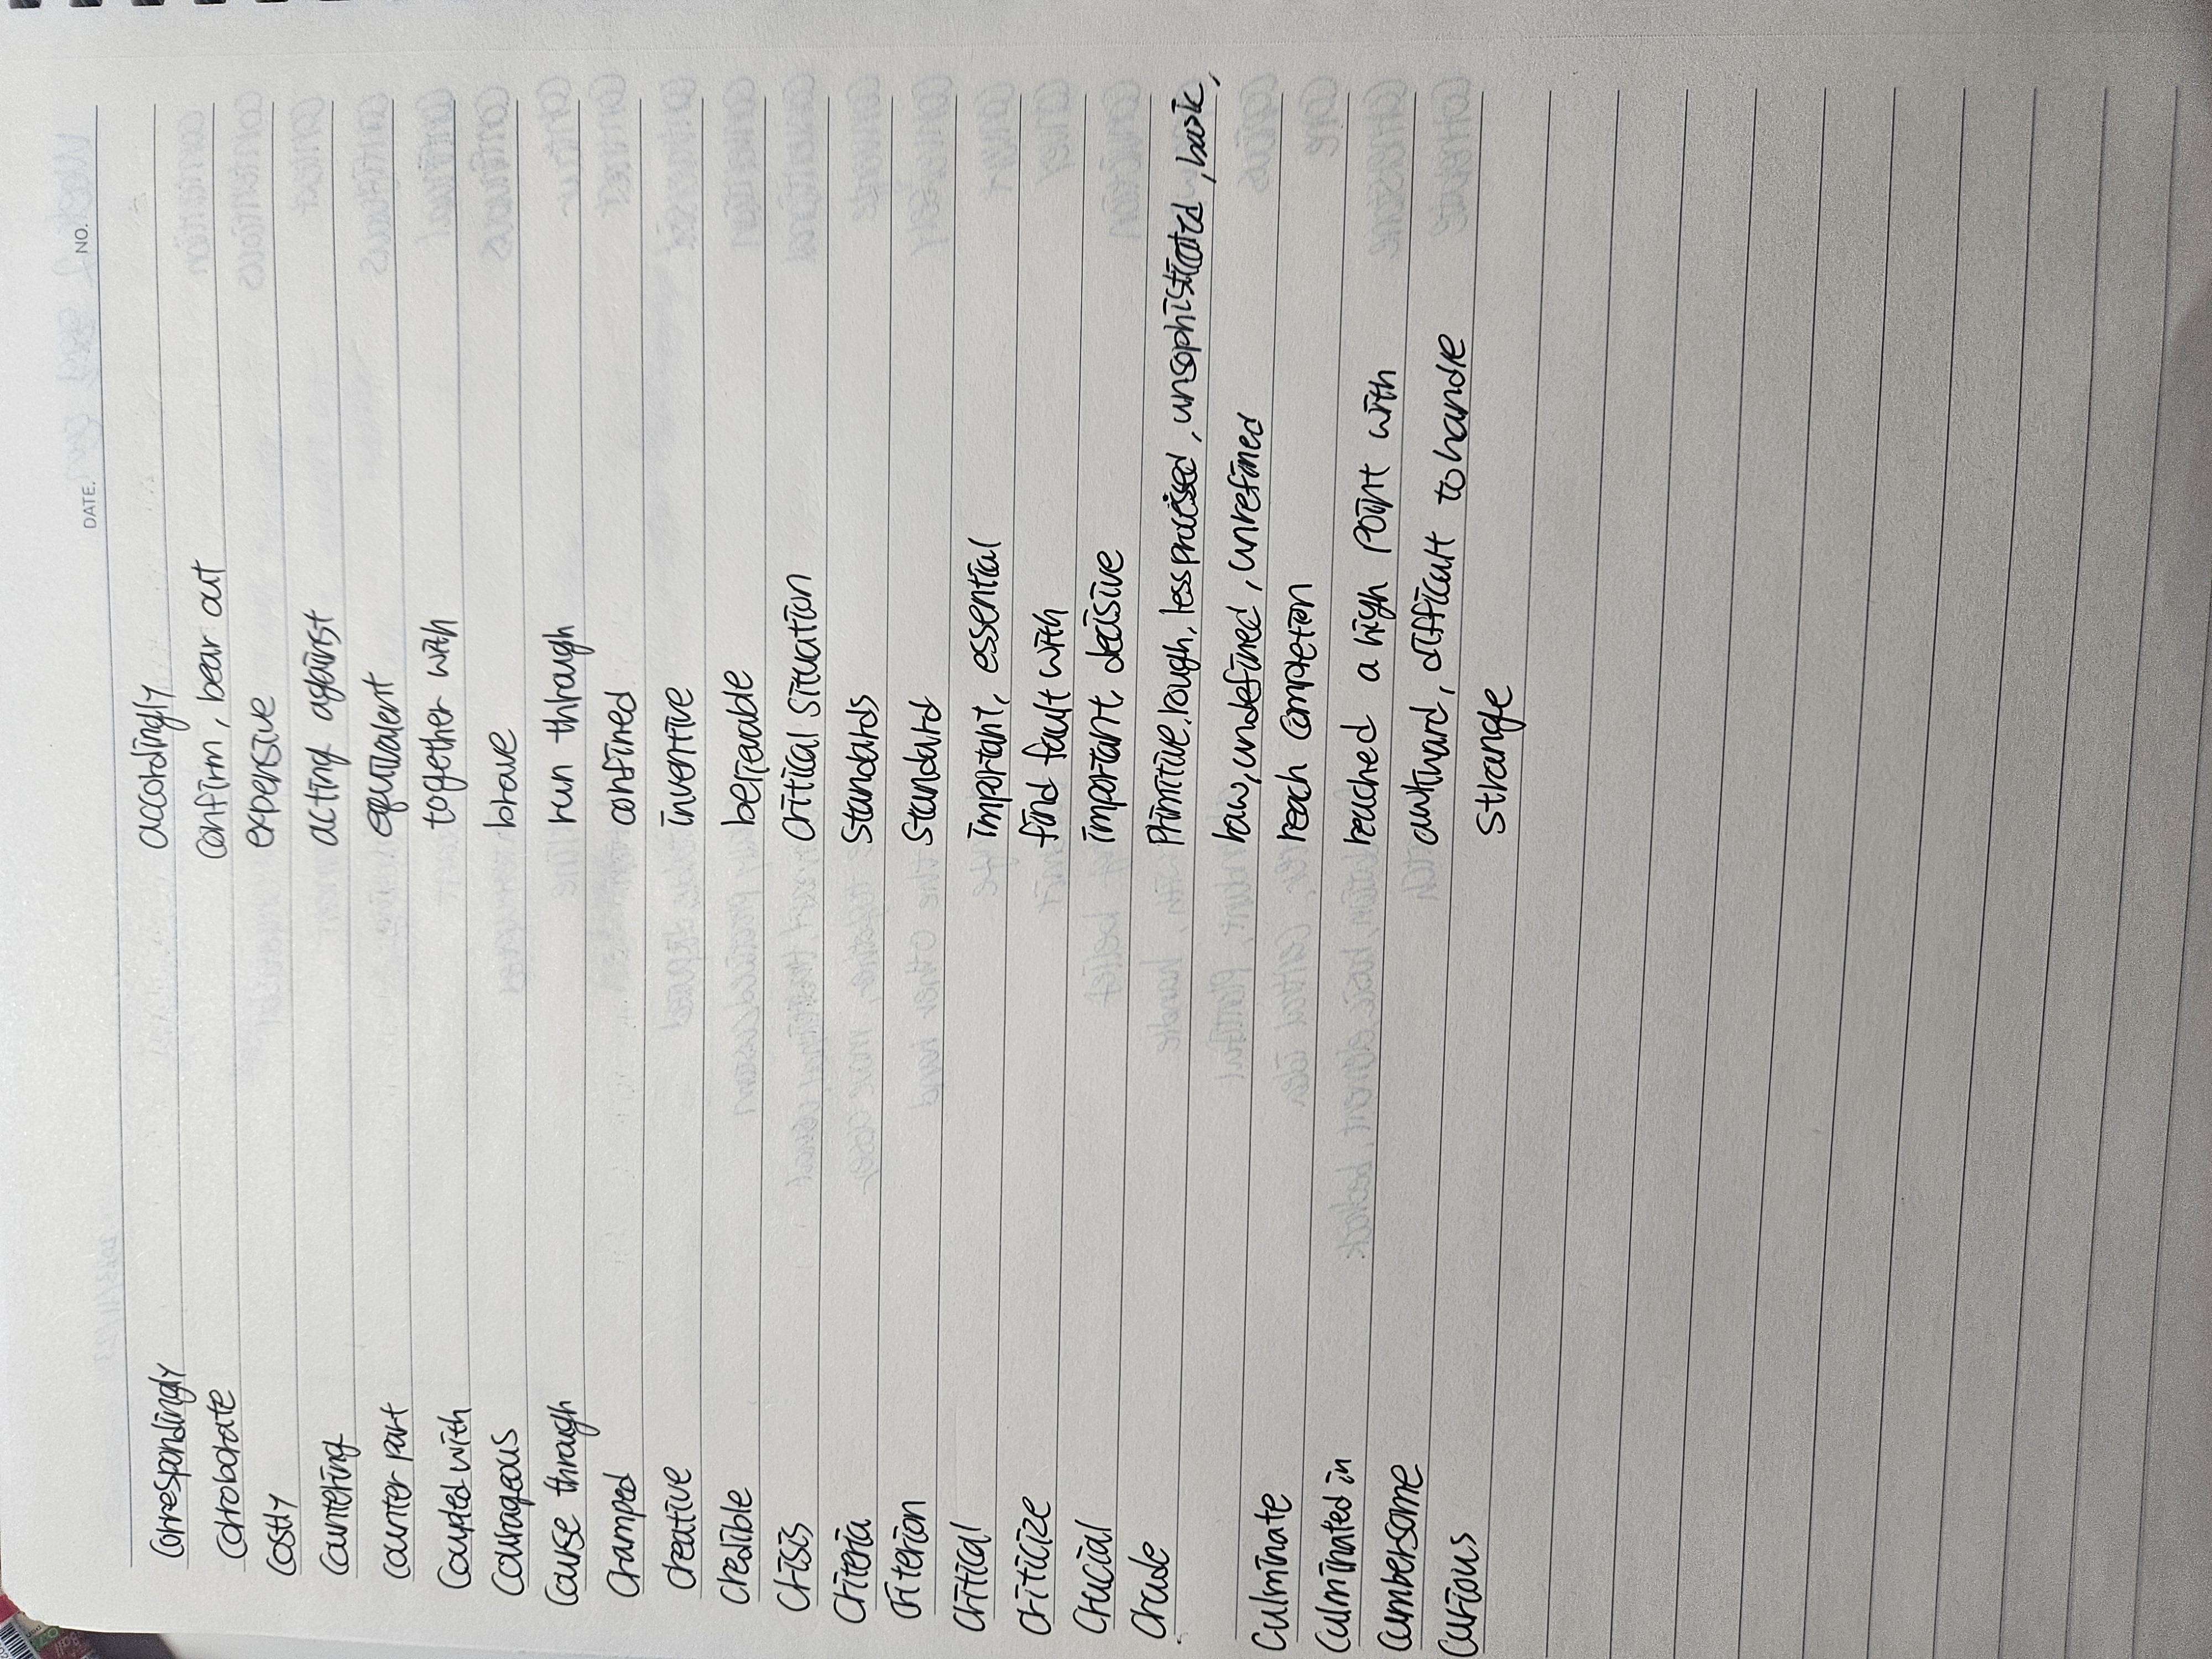 DATE. NO.
Correspondingly accordingly
Corroborate confirm, bear out
Costly expensive
Countering acting against
Counter part equivalent
Coupled with together with
Courageous brave
Course through run through
Cramped confined
Creative inventive
Credible believable
Crisis Critical Situation
Criteria Standards
Criterion Standard
Critical important, essential
Criticize find fault with
Crucial important, decisive
Crude Primitive, rough, less processed, unsophisticated, basic,
raw, undefined, unrefined
Culminate reach completion
Culminated in reached a high point with
Cumbersome awkward, difficult to handle
Curious Strange